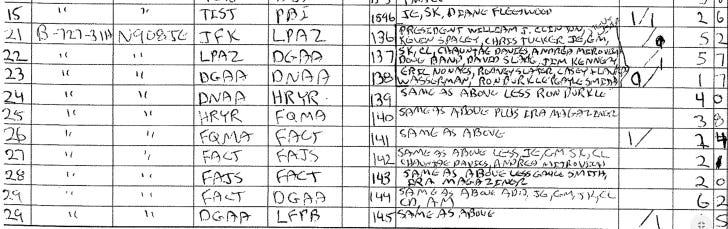 15 " " TEST PBI 1596 JE, SK, DIANE FLEETWOOD 1/1 2 6
21 B-727-31H N908JE JFK LPAZ 136 PRESIDENT WILLIAM J. CLINTON, KEVIN SPACEY, CHRIS TUCKER, JE, GM, 5 2
22 " " LPAZ DGAA 137 SK, CL, CHAUNTAE DAVIES, ANDREA MITROVICH, DOUG BAND, DAVID SLANG, JIM KENNEZ 5 7
23 " " DGAA DNAA 138 ERIC NONACS, RODNEY SLATER, CASEY WASSERMAN, RON BURKLE, GAYLE SMITH 1 7
24 " " DNAA HRYR 139 SAME AS ABOVE LESS RON BURKLE 4 0
25 " " HRYR FQMA 140 SAME AS ABOVE PLUS IRA MAGAZINER 3 8
26 " " FQMA FACT 141 SAME AS ABOVE 1/ 2 4
27 " " FACT FAJS 142 SAME AS ABOVE LESS, JE, GM, SK, CL CHAUNTAE DAVIES, ANDREA MITROVICH 2
28 " " FAJS FACT 143 SAME AS ABOVE LESS GAYLE SMITH, IRA MAGAZINER 2 0
29 " " FACT DGAA 144 SAME AS ABOVE ADD, JE, GM, SK, CL CD, AM 6 2
29 " " DGAA LFPB 145 SAME AS ABOVE /1 5